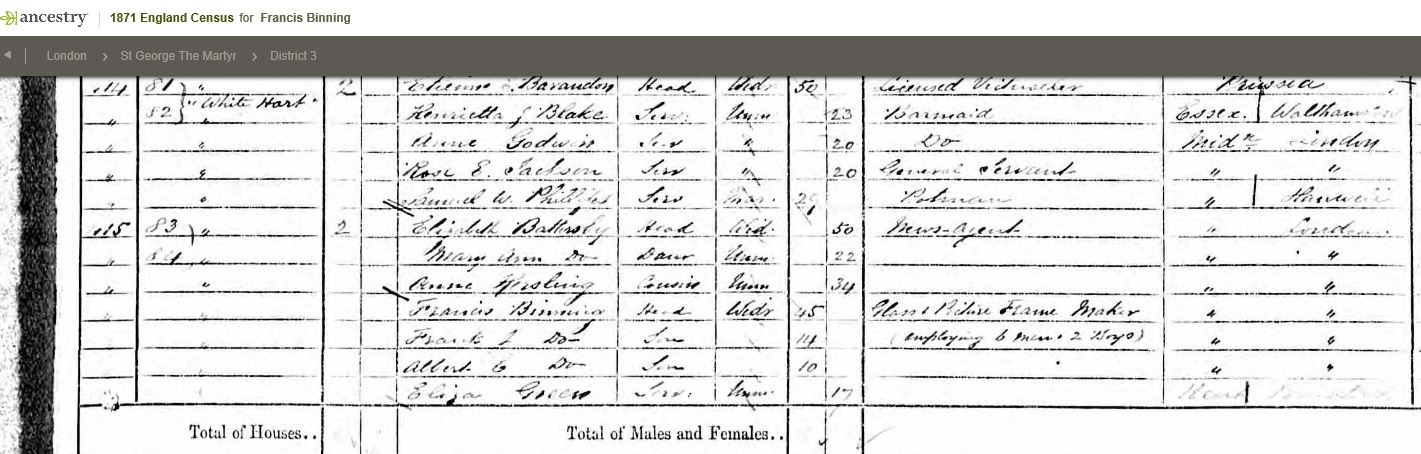 ancestry 1871 England Census for Francis Binning
London > St George The Martyr > District 3
114 81 " 2 Etienne Barandon Head Widr 50 Licensed Victualler Prussia
" 82 "White Hart" " Henrietta J Blake Serv. Unm 23 Barmaid Essex. Walthamstow
" " Anne Godwin Serv " 20 Do Midx London
" " Rose E. Jackson Serv " 20 General Servant " "
" " Samuel W. Phillips Serv Mar. 29 Potman " Hanwell
115 83 " 2 Elizabeth Battersby Head Wid. 50 News-agent " London
" 84 " Mary Ann Do Daur Unm. 22 " "
" " Anne Cousin Unm 34 " "
" " Francis Binning Head Widr 45 Glass & Picture Frame Maker " "
Frank J Do Son 14 (employing 6 men & 2 Boys) " "
Albert E Do Son 10 " "
Eliza Green Serv. Unm. 17 Kent
Total of Houses.. Total of Males and Females..